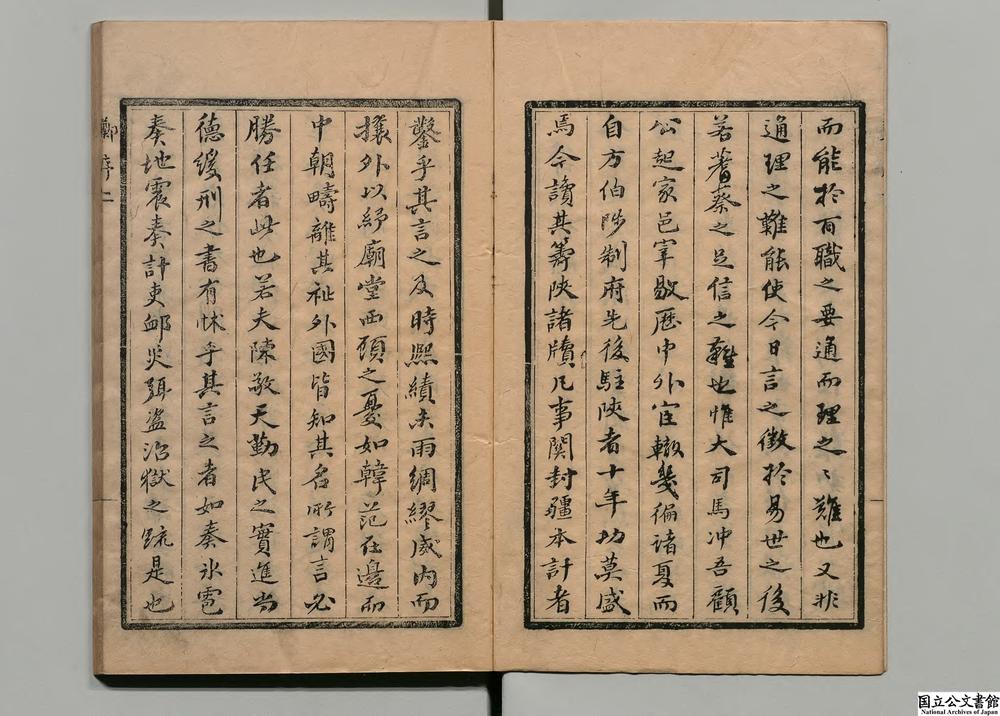 而能於百職之要通而理之〻難也又非
通理之難能使今日言之徵於易世之後
若蓍蔡之足信之難也惟大司馬冲吾顧
公起家邑宰敭歷中外宦轍幾徧諸夏而
自方伯陟制府先後駐陝者十年功莫盛
焉今讀其籌陝諸牘凡事関封疆本計者
鑿乎其言之及時熈績未雨綢繆威内而
攘外以紓廟堂西顧之憂如韓范在邊而
中朝疇離其祉外國皆知其名所謂言必
勝任者此也若夫陳敬天勤民之實進尚
德緩刑之書有怵乎其言之者如奏氷雹
奏地震奏計吏䘏災弭盜治獄之疏是也
鄭序二
国立公文書館
National Archives of Japan